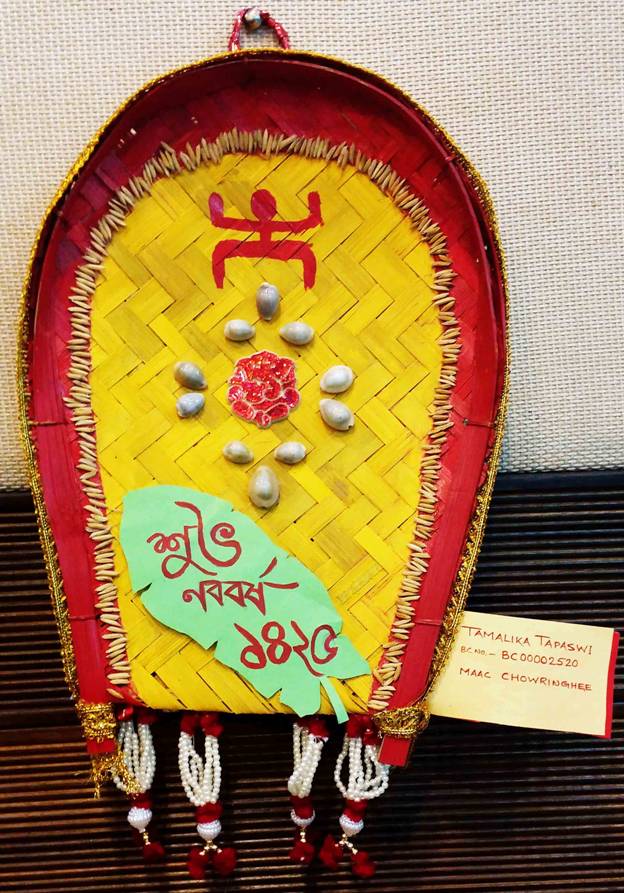 শুভ
নববর্ষ
১৪২৫
TAMALIKA TAPASWI
BC NO. - BC00002520
MAAC CHOWRINGHEE